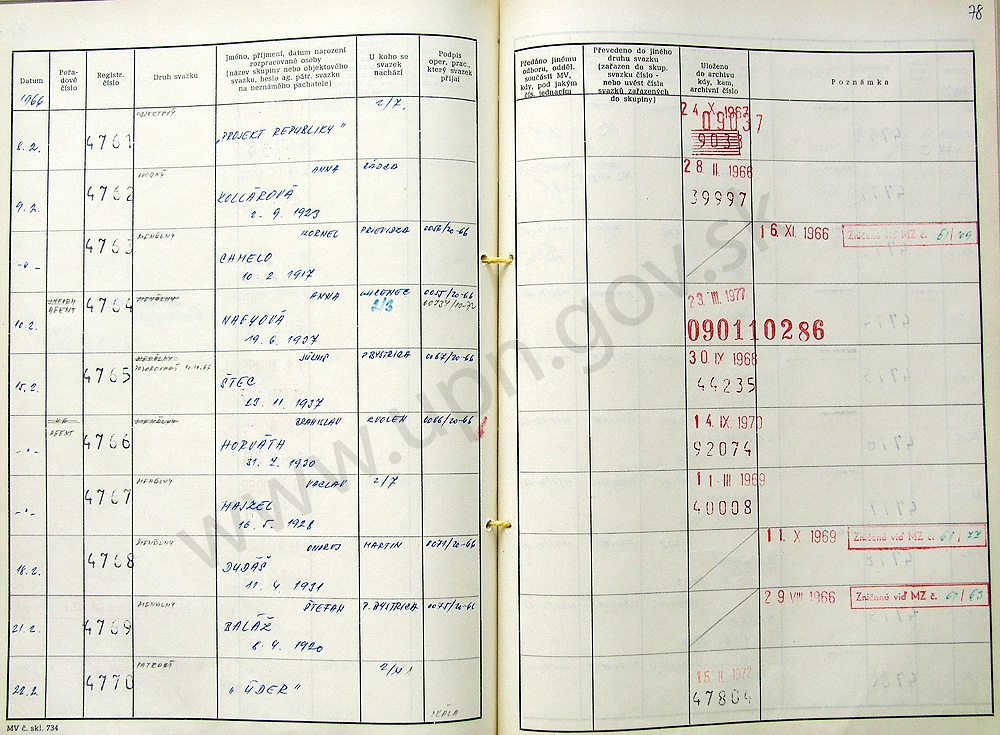 78
Datum
Pořa-
dové
číslo
Registr.
číslo
Druh svazku
Jméno, příjmení, datum narození
rozpracované osoby
(název skupiny nebo objektového
svazku, heslo ag. pátr. svazku
na neznámého pachatele)
U koho se
svazek
nachází
Podpis
oper. prac.,
který svazek
přijal
Předáno jinému
odboru, odděl.
součásti MV,
kdy, pod jakým
čís. jednacím
Převedeno do jiného
druhu svazku
(zařazen do skup.
svazku číslo -
nebo uvést čísla
svazků zařazených
do skupiny)
Uloženo
do archivu
kdy, kam,
archivní číslo
Poznámka
1966
8.2.
4761
OBJEKTOVÝ
„PROJEKT REPUBLIKY"
2/7.
24 X. 1967
09037
9.2.
4762
ANNA
KOLLÁROVÁ
2. 9. 1923
28 II 1966
39997
4763
MENÁLNY
KORNEL
CHMELO
10. 2. 1917
PRIEVIDZA
0056/20-66
16. XI. 1966
Zničené viď MZ č.
10.2.
AGENT
4764
MENÁLNY
ANNA
NAGYOVÁ
19. 6. 1937
LUČENEC
2/3
0055/20-66
23. III. 1977
090110286
15.2.
4765
MENÁLNY
JÚLIUS
ŠTEC
23. 11. 1937
P.BYSTRICA
0067/20-66
30. IX 1968
44235
- " -
AGENT
4766
MENÁLNY
BRANISLAV
HORVÁTH
31. 7. 1930
ZVOLEN
0066/20-66
14. IX. 1970
92074
- " -
4767
MENÁLNY
VACLAV
MAJZEL
16. 5. 1928
2/7
11. III 1969
40008
18.2.
4768
MENÁLNY
ONDREJ
DUDÁŠ
11. 4. 1931
MARTIN
0071/20-66
11. X 1969
Zničené viď MZ č.
21.2.
4769
MENÁLNY
ŠTEFAN
BALÁŽ
8. 4. 1920
P. BYSTRICA
0075/20-66
29 VIII 1966
Zničené viď MZ č.
22.2.
4770
„ÚDER"
15. II. 1977
47804
SKALA
MV č. skl. 734
www.upn.gov.sk